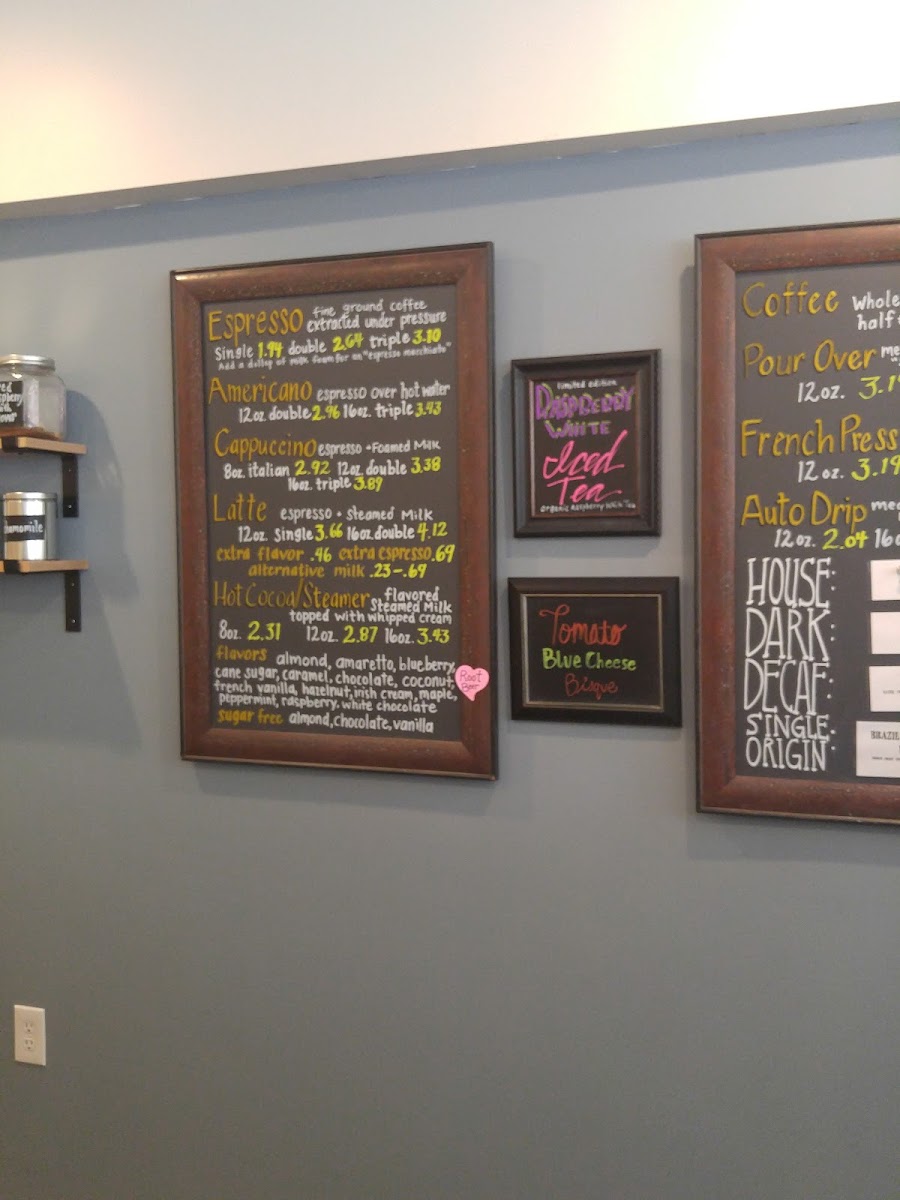 Espresso fine ground coffee
extracted under pressure
Single 1.94 double 2.64 triple 3.10
Add a dollop of milk foam for an "espresso macchiato"
Americano espresso over hot water
12oz. double 2.96 16oz. triple 3.43
Cappuccino espresso + Foamed Milk
8oz. italian 2.92 12oz. double 3.38
16oz. triple 3.89
Latte espresso + Steamed Milk
12oz. Single 3.66 16oz. double 4.12
extra flavor .46 extra espresso .69
alternative milk .23-.69
Hot Cocoa/Steamer flavored
steamed Milk
topped with whipped cream
8oz. 2.31 12oz. 2.87 16oz. 3.43
flavors almond, amaretto, blueberry,
cane sugar, caramel, chocolate, coconut,
french vanilla, hazelnut, irish cream, maple,
peppermint, raspberry. white chocolate
sugar free almond, chocolate, vanilla
Root
Beer
limited edition
RASPBERRY
WHITE
Iced
Tea
organic Raspberry White Tea
Tomato
Blue Cheese
Bisque
Coffee Whole
half
Pour Over me
12oz. 3.1
French Press
12oz. 3.19
Auto Drip med
12oz. 2.04 16o
HOUSE:
DARK:
DECAF:
SINGLE
ORIGIN:
BRAZIL
chamomile